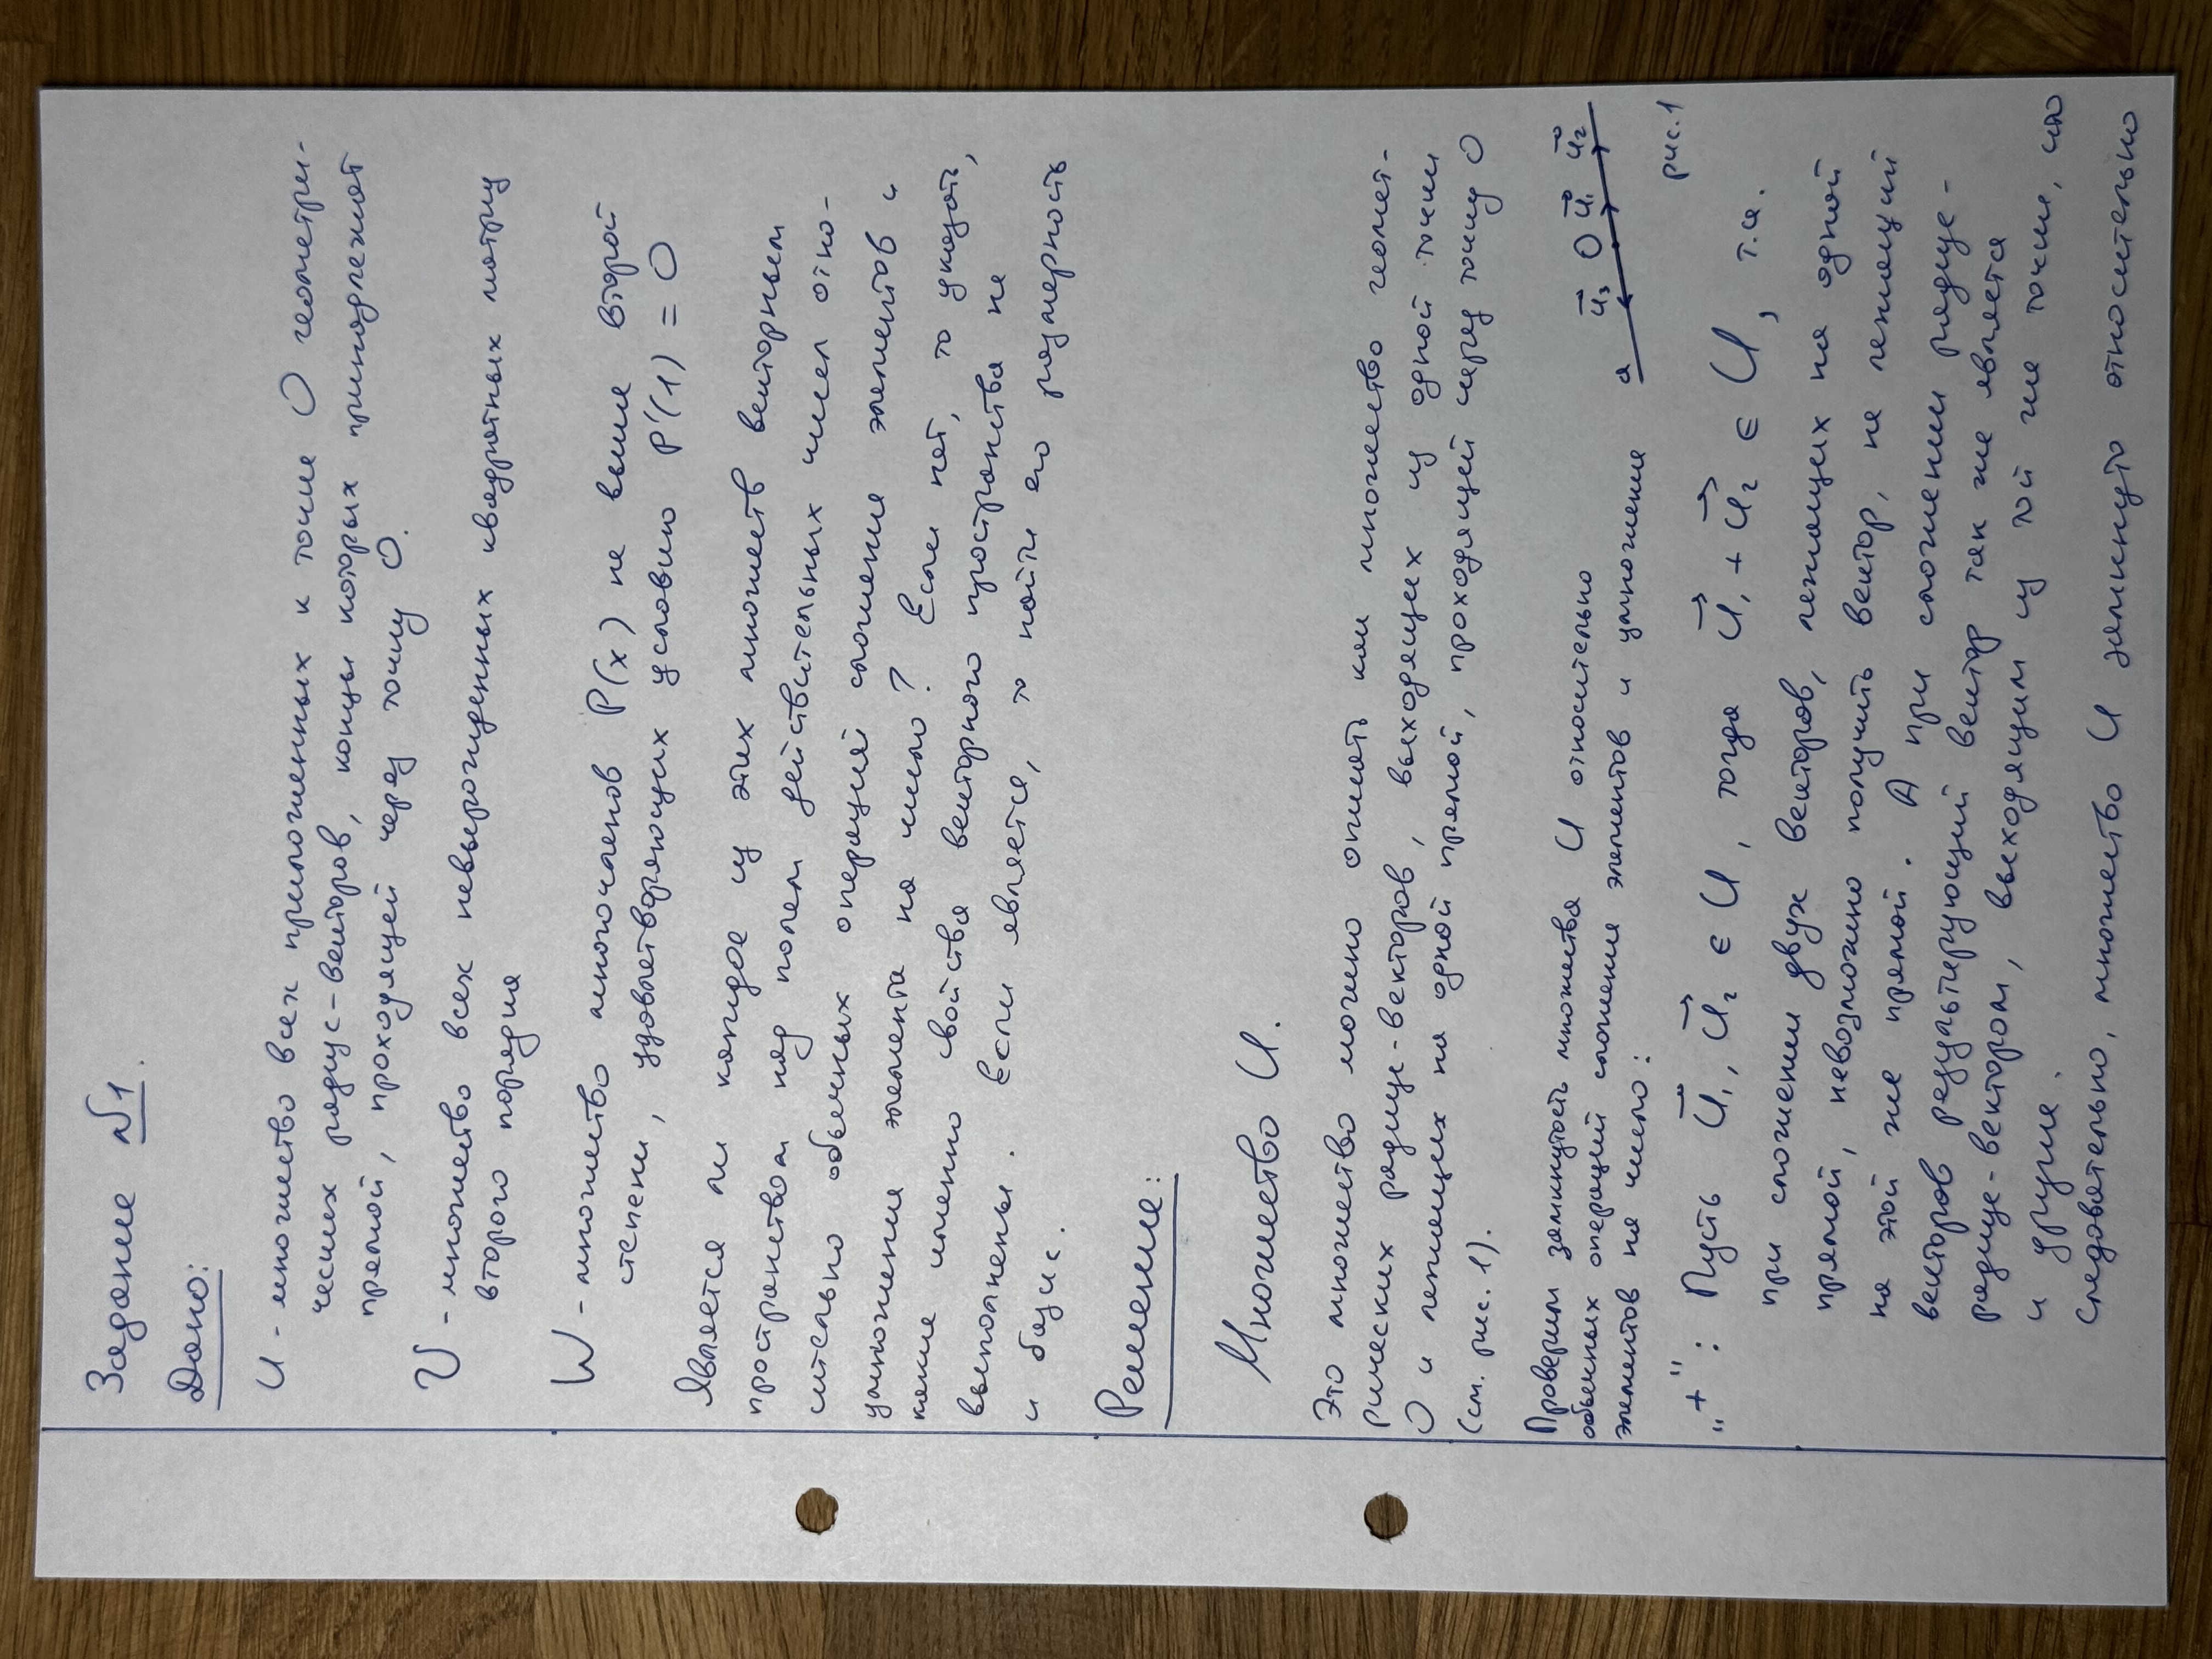 Задание №1.
Дано:
U - множество всех приложенных к точке O геометри-
ческих радиус-векторов, концы которых принадлежат
прямой, проходящей через точку O.
V - множество всех невырожденных квадратных матриц
второго порядка
W - множество многочленов P(x) не выше второй
степени, удовлетворяющих условию P'(1) = 0
Является ли каждое из этих множеств векторным
пространством над полем действительных чисел отно-
сительно обычных операций сложение элементов и
умножение элемента на число? Если нет, то указать,
какие именно свойства векторного пространства не
выполнены. Если является, то найти его размерность
и базис.
Решение:
Множество U.
Это множество можно описать как множество геомет-
рических радиус-векторов, выходящих из одной точки
O и лежащих на одной прямой, проходящей через точку O
(см. рис. 1).
Проверим замкнутость множества U относительно
обычных операций сложение элементов и умножение
элементов на число:
a u⃗₃ O u⃗₁ u⃗₂
рис.1
„+“: Пусть u⃗₁, u⃗₂ ∈ U, тогда u⃗₁ + u⃗₂ ∈ U, т.к.
при сложении двух векторов, лежащих на одной
прямой, невозможно получить вектор, не лежащий
на этой же прямой. А при сложении радиус-
векторов результирующий вектор так же является
радиус-вектором, выходящим из той же точки, что
и другие.
Следовательно, множество U замкнуто относительно